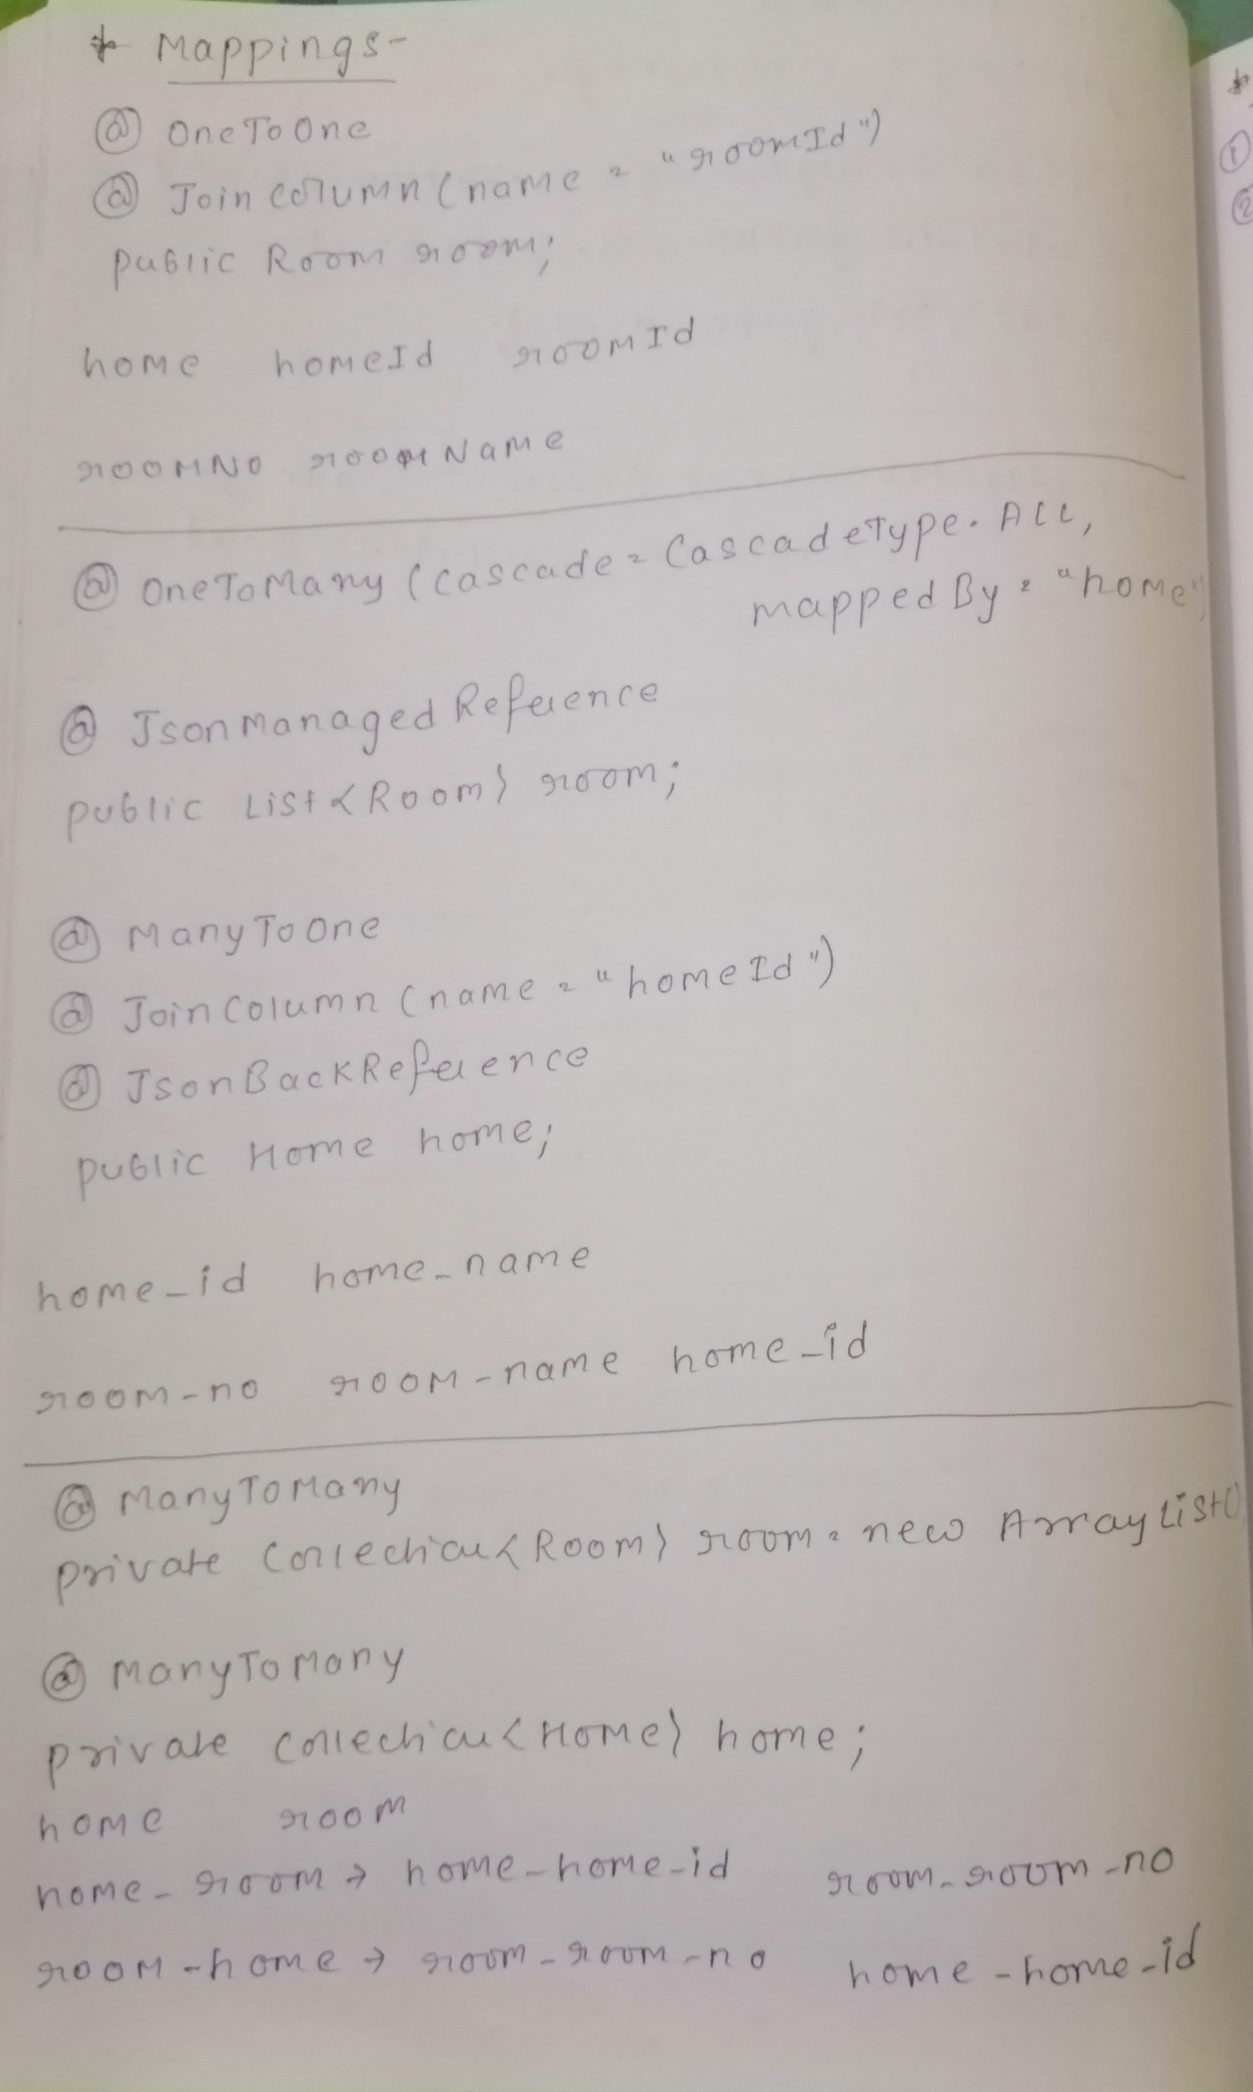 * Mappings-
@ OneToOne
@ JoinColumn (name = "roomId")
public Room room;
home homeId roomId
roomNo roomName
@ OneToMany (cascade = CascadeType.ALL,
mappedBy = "home")
@ JsonManagedReference
public List<Room> room;
@ ManyToOne
@ JoinColumn (name = "homeId")
@ JsonBackReference
public Home home;
home_id home_name
room-no room-name home_id
@ ManyToMany
private Collection<Room> room = new ArrayList()
@ ManyToMany
private Collection<Home> home;
home room
home-room → home-home-id room-room-no
room-home → room-room-no home-home-id
*
①
②